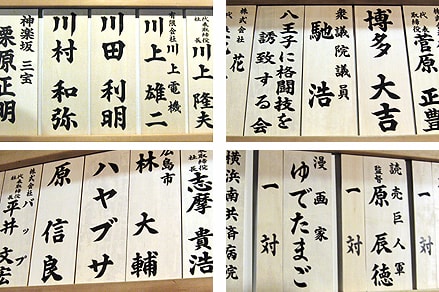 代表取締役
社長
川上 隆夫
有限会社 川上電機
川上 雄二
川田 利明
川村 和弥
神楽坂 三宝
栗原 正明
代表取締役
菅原 正豊
博多 大吉
衆議院議員
馳 浩
八王子に格闘技を
誘致する会
花
代表取締役
社長
志摩 貴浩
広島市
林 大輔
ハヤブサ
原 信良
株式会社 バップ
代表取締役
社長
平井 文宏
読売巨人軍
監督
原 辰徳
一対
一対
漫画家
ゆでたまご
一対
横浜南共済病院